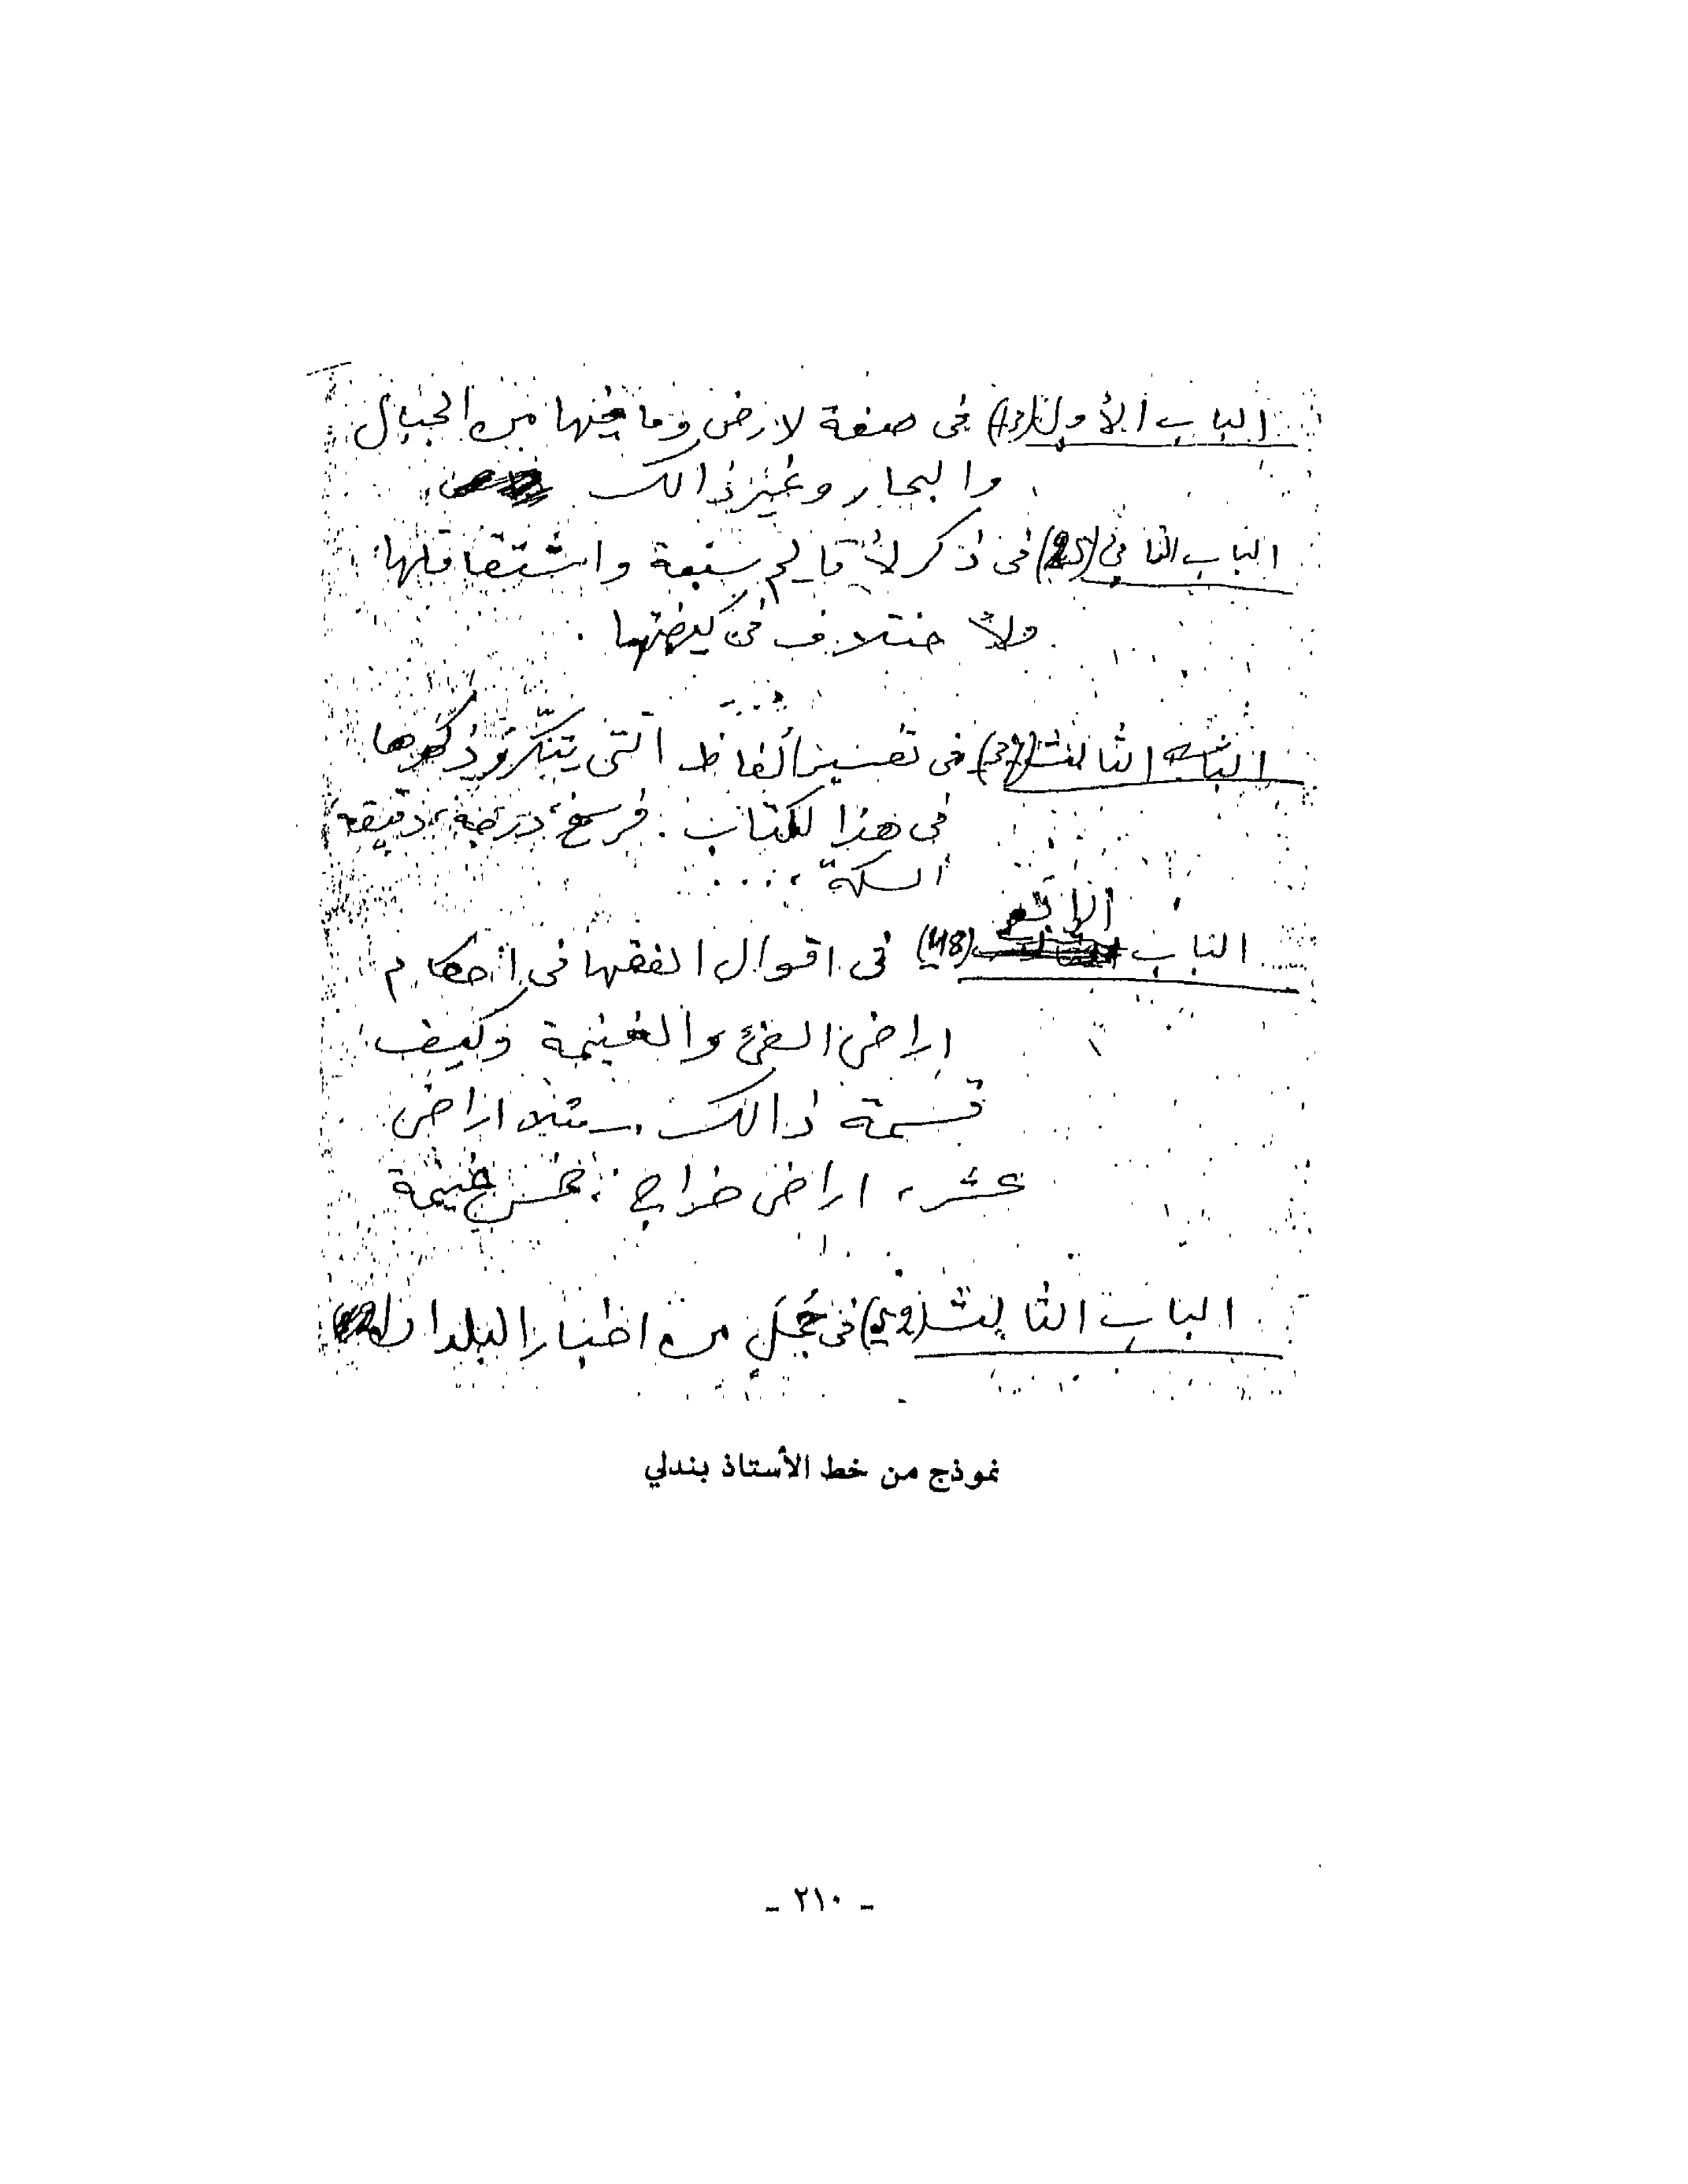 الباب الأول (13) في صفة لارض وما فيها من الجبال
والبحار وغير ذالك
الباب الثاني (25) في ذكر لأقاليم سبعة واشتقاقها
ولأختلاف في كيفيتها .
الباب الثالث في تفسير ألفاظ التي يتكرّر ذكرها
في هذا لكتاب : فرسخ، درجة، دقيقة،
السكة، ...
الباب الرابع (48) في اقوال الفقها في احكام
اراضي الفئ والغنيمة وكيف
قسمة ذالك . مثلا اراضي
عشر، اراضي خراج، خمس غنيمة
الباب الثالث (52) في جُمَلٍ من اخبار البلدان
نموذج من خط الأستاذ بندلي
- ٢١٠ -